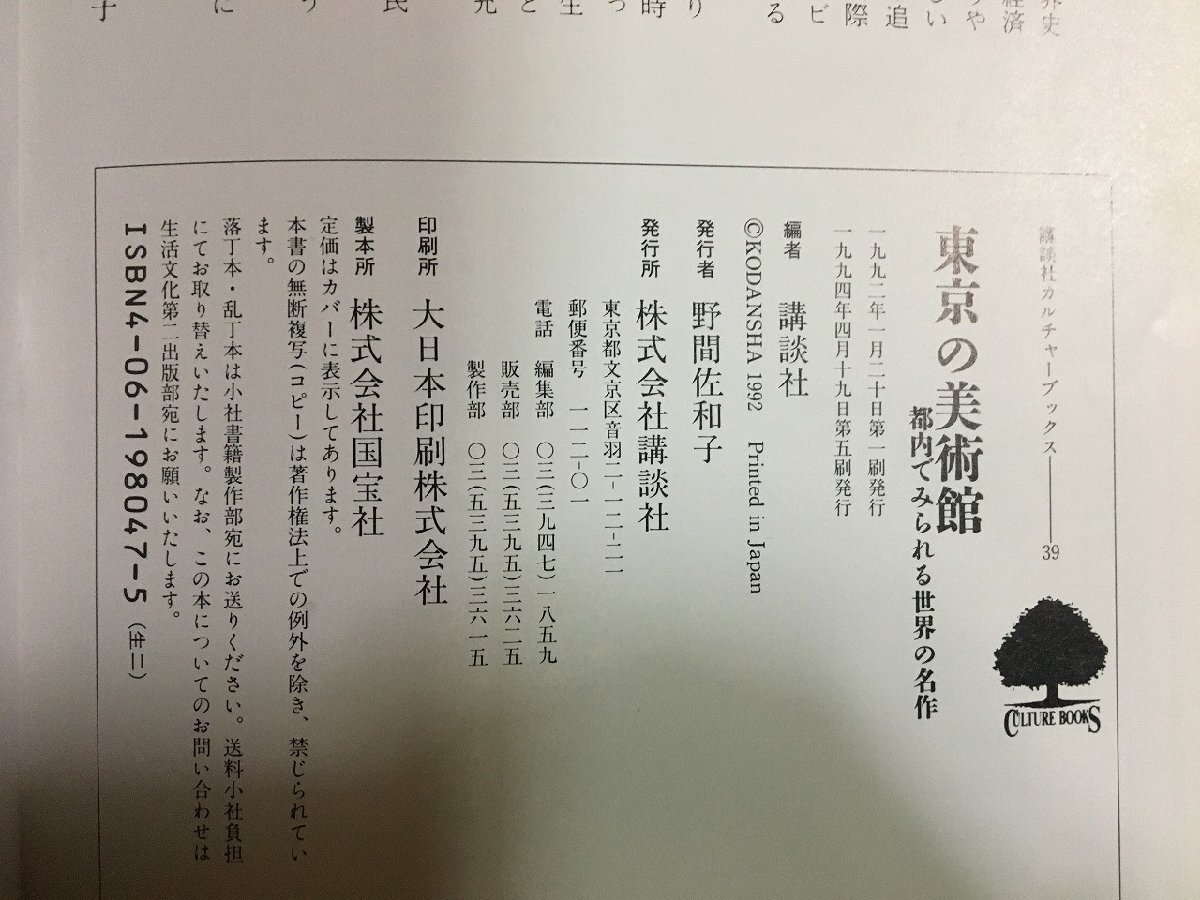 講談社カルチャーブックス――39
CULTURE BOOKS
東京の美術館
都内でみられる世界の名作
一九九二年一月二十日第一刷発行
一九九四年四月十九日第五刷発行
編者 講談社
©KODANSHA 1992 Printed in Japan
発行者 野間佐和子
発行所 株式会社講談社
東京都文京区音羽二-一二-二一
郵便番号 一一二-〇一
電話 編集部 〇三(三九四七)一八五九
販売部 〇三(五三九五)三六二五
製作部 〇三(五三九五)三六一五
印刷所 大日本印刷株式会社
製本所 株式会社国宝社
定価はカバーに表示してあります。
本書の無断複写(コピー)は著作権法上での例外を除き、禁じられてい
ます。
落丁本・乱丁本は小社書籍製作部宛にお送りください。送料小社負担
にてお取り替えいたします。なお、この本についてのお問い合わせは
生活文化第二出版部宛にお願いいたします。
ISBN4-06-198047-5 (生二)